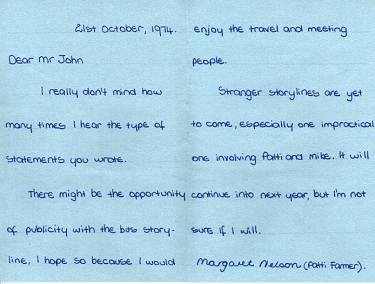 21st October, 1974.
Dear Mr John
I really don't mind how
many times I hear the type of
statements you wrote.
There might be the opportunity
of publicity with the bus story-
line, I hope so because I would
enjoy the travel and meeting
people.
Stranger storylines are yet
to come, especially one impractical
one involving Patti and Mike. It will
continue into next year, but I'm not
sure if I will.
Margaret Nelson (Patti Farmer).